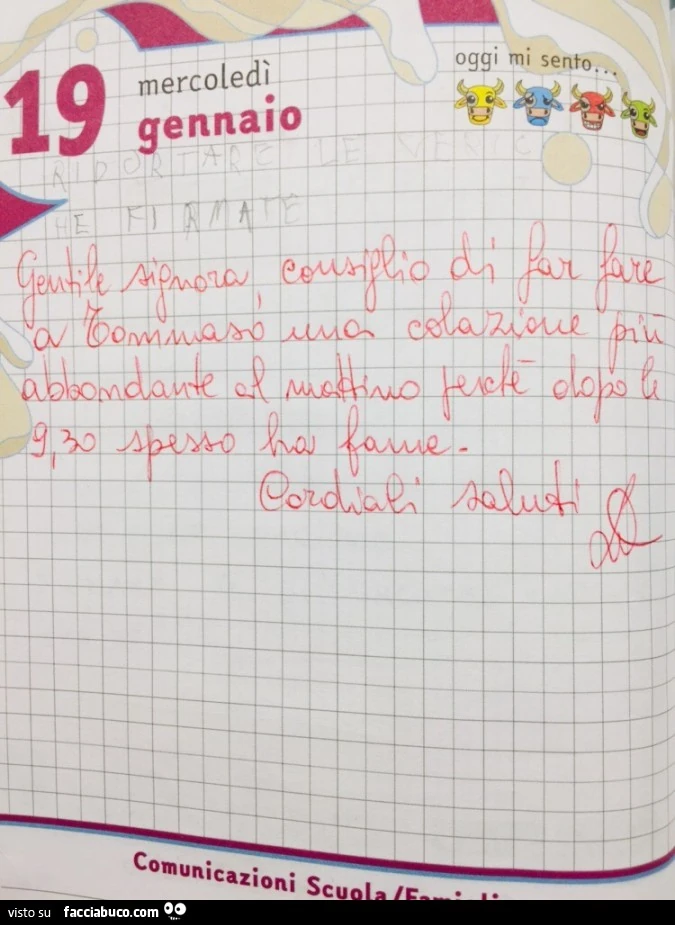 19
mercoledì
gennaio
oggi mi sento...
RIPORTARE LE VERIFIC
HE FIRMATE
Gentile signora, consiglio di far fare
a Tommaso una colazione più
abbondante al mattino perché dopo le
9,30 spesso ha fame.
Cordiali saluti
Comunicazioni Scuola/Famigli
visto su facciabuco.com